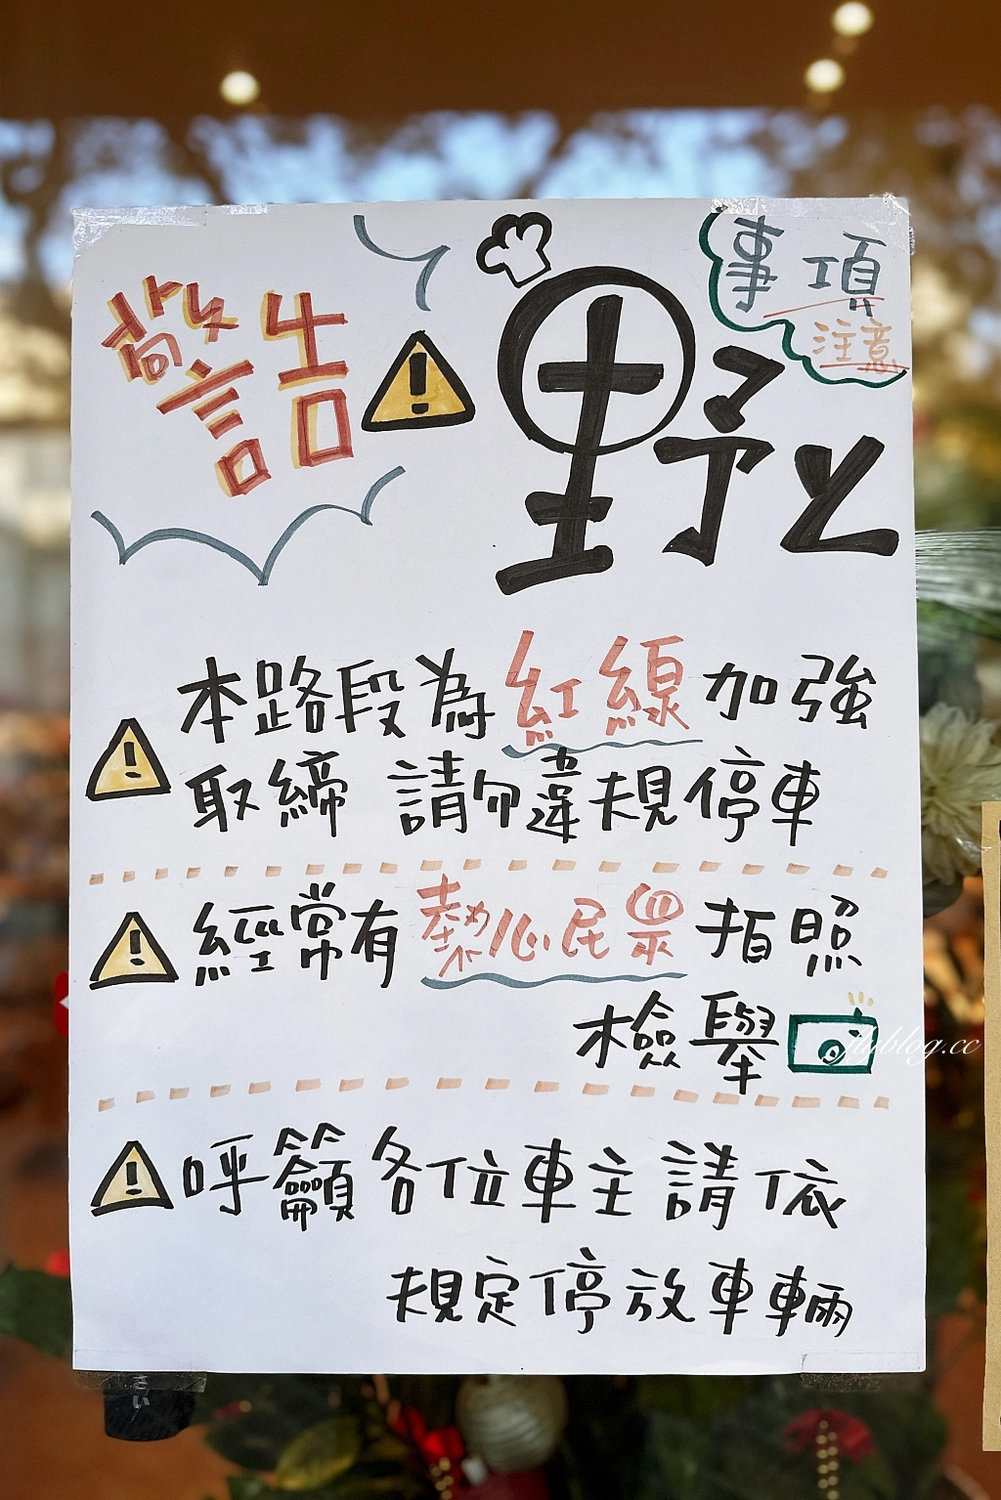 警告
野人
事項
注意
本路段為紅線加強
取締 請勿違規停車
經常有熱心民眾拍照
檢舉
呼籲各位車主請依
規定停放車輛